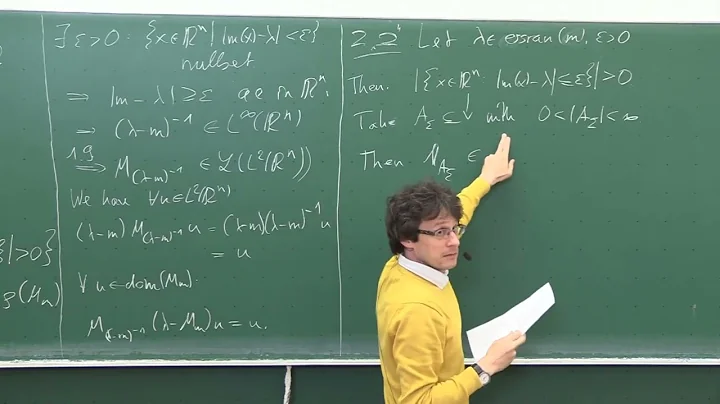 ∃ ε>0 : {x∈ℝⁿ | |m(x)-λ|<ε}
nullset
⇒ |m-λ| ≥ ε ae in ℝⁿ.
⇒ (λ-m)⁻¹ ∈ L^∞(ℝⁿ)
1.9 ⇒ M_{(λ-m)⁻¹} ∈ ℒ(L²(ℝⁿ))
We have ∀u∈L²(ℝⁿ)
(λ-m) M_{(λ-m)⁻¹} u = (λ-m)(λ-m)⁻¹ u
= u
∀ u∈dom(M_m):
M_{(λ-m)⁻¹} (λ-M_m)u = u.
|>0}
ρ(M_m)
Let λ∈ essran(m), ε>0
Then |{x∈ℝⁿ: |m(x)-λ|≤ε}|>0
Take A_ε ⊆ ↓ with 0<|A_ε|<∞
Then 𝟙_{A_ε} ∈